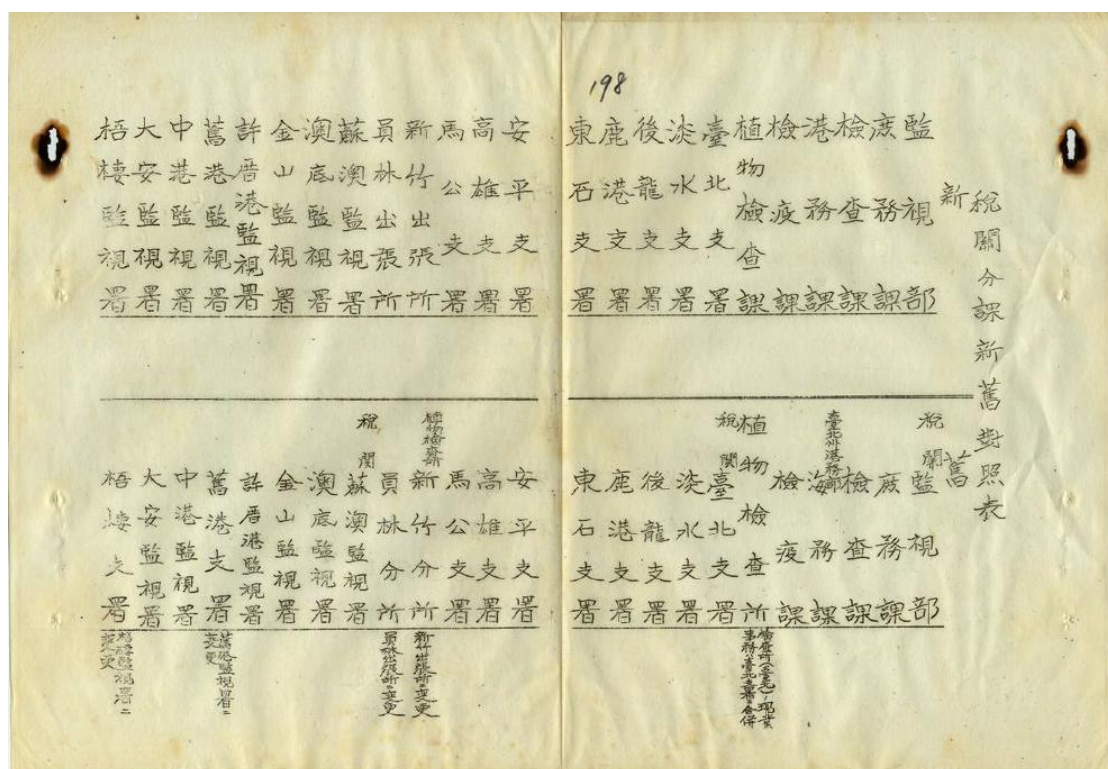 198
税關分課新舊對照表
新
監視部
庶務課
檢查課
港務課
檢疫課
植物檢查課
臺北支署
淡水支署
後龍支署
鹿港支署
東石支署
安平支署
高雄支署
馬公支署
新竹出張所
員林出張所
蘇澳監視署
澳底監視署
金山監視署
許厝港監視署
舊港監視署
中港監視署
大安監視署
梧棲監視署
舊
税關
監視部
庶務課
檢查課
臺北州港務部
海務課
檢疫課
植物檢查所
現業
事務ハ臺北支署ニ合併
税関
臺北支署
淡水支署
後龍支署
鹿港支署
東石支署
安平支署
高雄支署
馬公支署
植物檢查所
新竹分所
新竹出張所ニ變更
員林分所
員林出張所ニ變更
税関
蘇澳監視署
澳底監視署
金山監視署
許厝港監視署
舊港支署
舊港監視署ニ
變更
中港監視署
大安監視署
梧棲支署
梧棲監視署ニ
變更